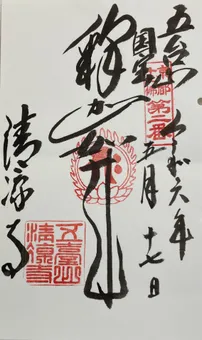 五台山
令和六年
五月十七日
国宝
京都
十三佛
第二番
清凉寺
五臺山
清凉寺